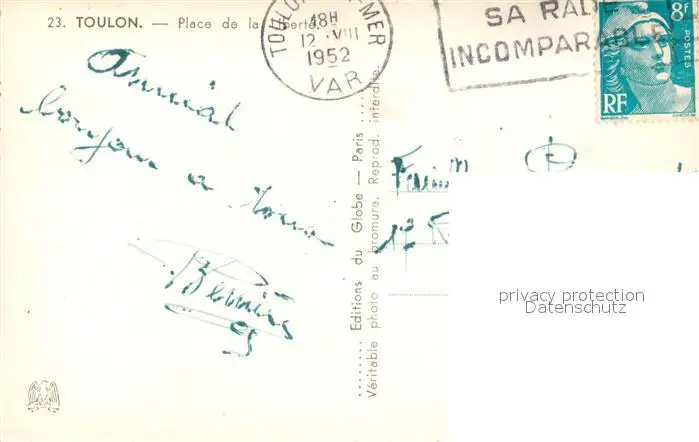 23. TOULON. — Place de la Liberté
18H
12 · VIII
1952
VAR
SA RADE
INCOMPARABLE
8F
POSTES
RF
Amical
bonjour a tous
Editions du Globe — Paris
Véritable photo au bromure. Reprod. interdite.
privacy protection
Datenschutz